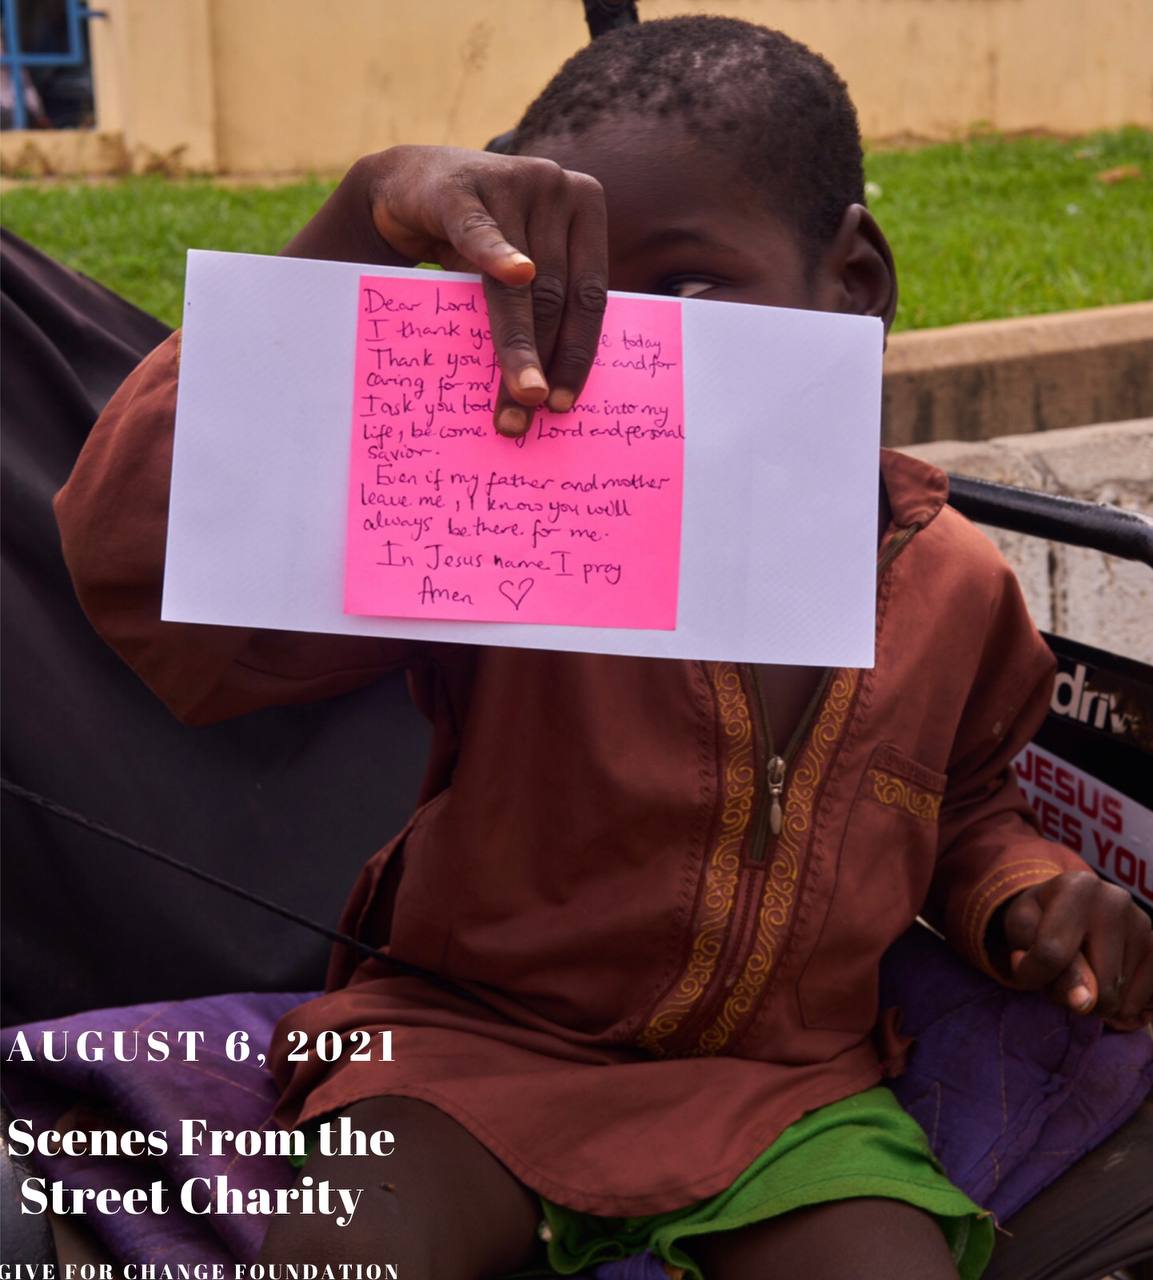 Dear Lord
I thank yo e today
Thank you f e and for
caring for me
I ask you tod me into my
life, become y Lord and personal
savior.
Even if my father and mother
leave me, I know you will
always be there for me.
In Jesus name I pray
Amen ♡
driv
JESUS
VES YOU
AUGUST 6, 2021
Scenes From the
Street Charity
GIVE FOR CHANGE FOUNDATION